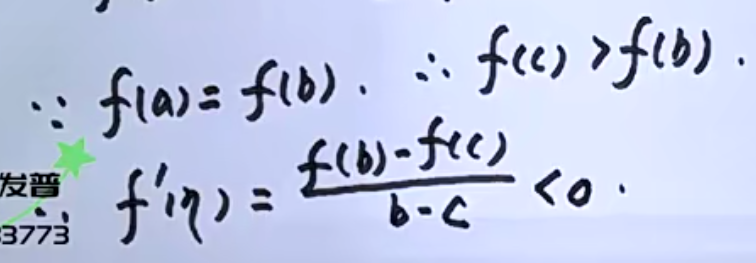 ∵ f(a) = f(b). ∴ f(c) > f(b).
∴ f'(η) = \frac{f(b)-f(c)}{b-c} < 0.
发普
3773